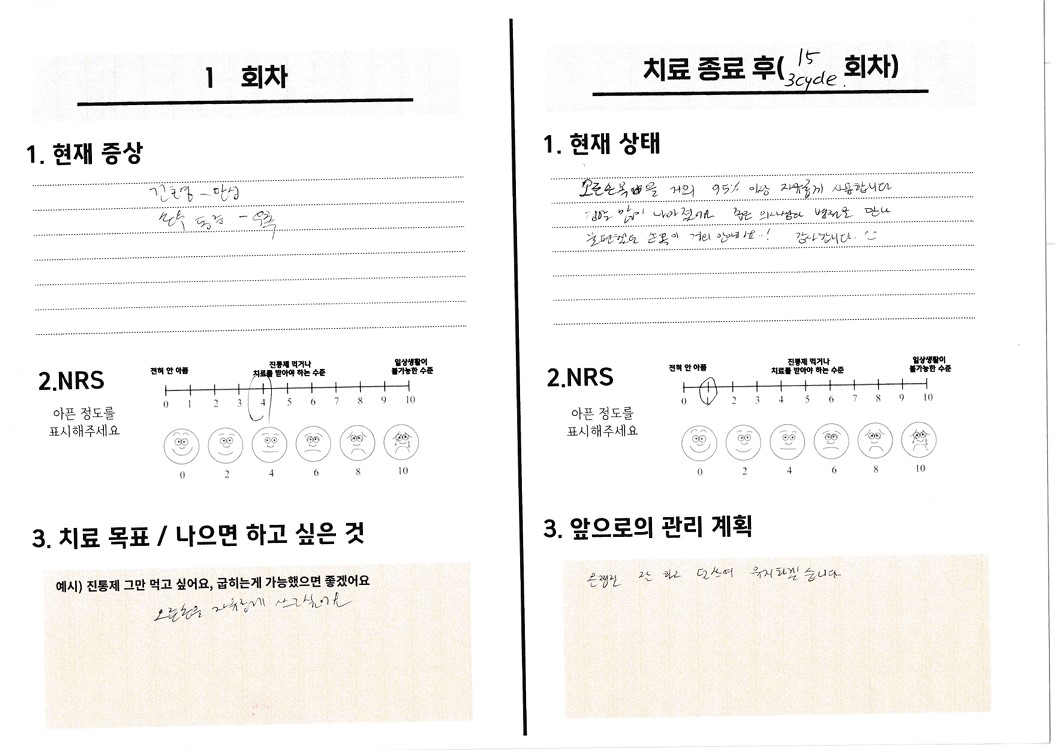 1 회차
1. 현재 증상
만성
통증 -
2.NRS
아픈 정도를
표시해주세요
전혀 안 아픔
진통제 먹거나
치료를 받아야 하는 수준
일상생활이
불가능한 수준
0 1 2 3 4 5 6 7 8 9 10
0 2 4 6 8 10
3. 치료 목표 / 나으면 하고 싶은 것
예시) 진통제 그만 먹고 싶어요, 굽히는게 가능했으면 좋겠어요
오른손을 자유롭게 쓰고싶어요
치료 종료 후(15 회차)
3cycle.
1. 현재 상태
오른손목을 거의 95% 이상 자유롭게 사용합니다
정말 많이 나아졌어요 좋은 의사선생님 만나
불편했던 손목이 거의 감사합니다.
2.NRS
아픈 정도를
표시해주세요
전혀 안 아픔
진통제 먹거나
치료를 받아야 하는 수준
일상생활이
불가능한 수준
0 1 2 3 4 5 6 7 8 9 10
0 2 4 6 8 10
3. 앞으로의 관리 계획
운동 하고 덜쓰며 유지하겠습니다